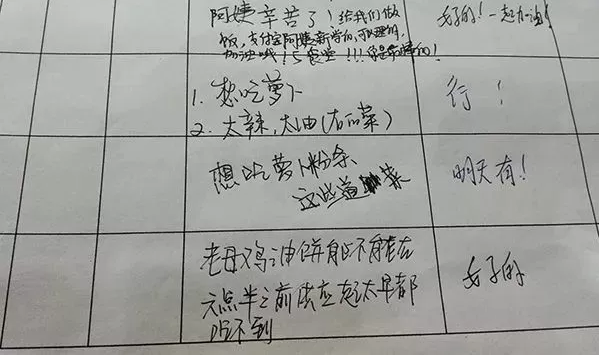 阿姨辛苦了！给我们做
饭，支付宝阿姨新学的，可以理解的，
加油哦！
好的！一起加油！
1. 想吃萝卜
2. 太辣，太油（有的菜）
行！
想吃萝卜粉条
这些道菜
明天有！
老母鸡油饼能不能在
六点半之前供应起太早都
吃不到
好的